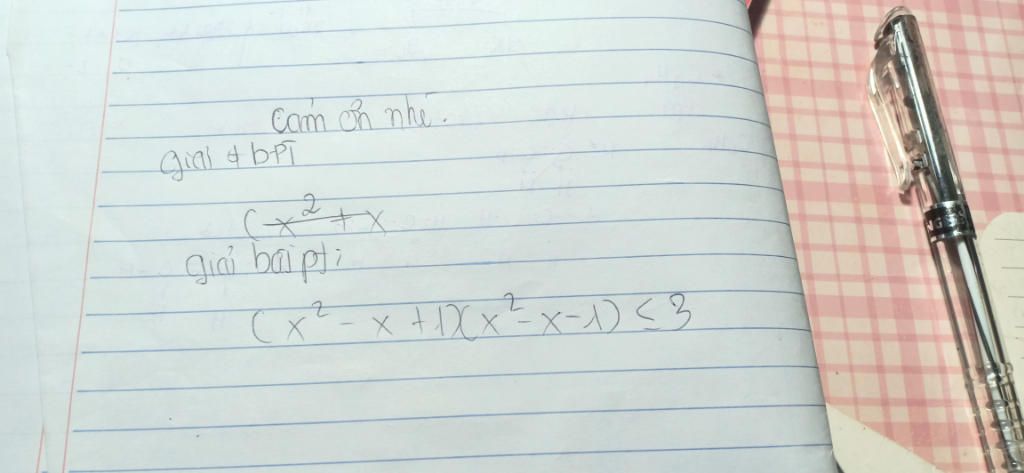 Cảm ơn nhé.
giải & bPT
(-x² + x
giải bài pt:
(x² - x + 1)(x² - x - 1) ≤ 3